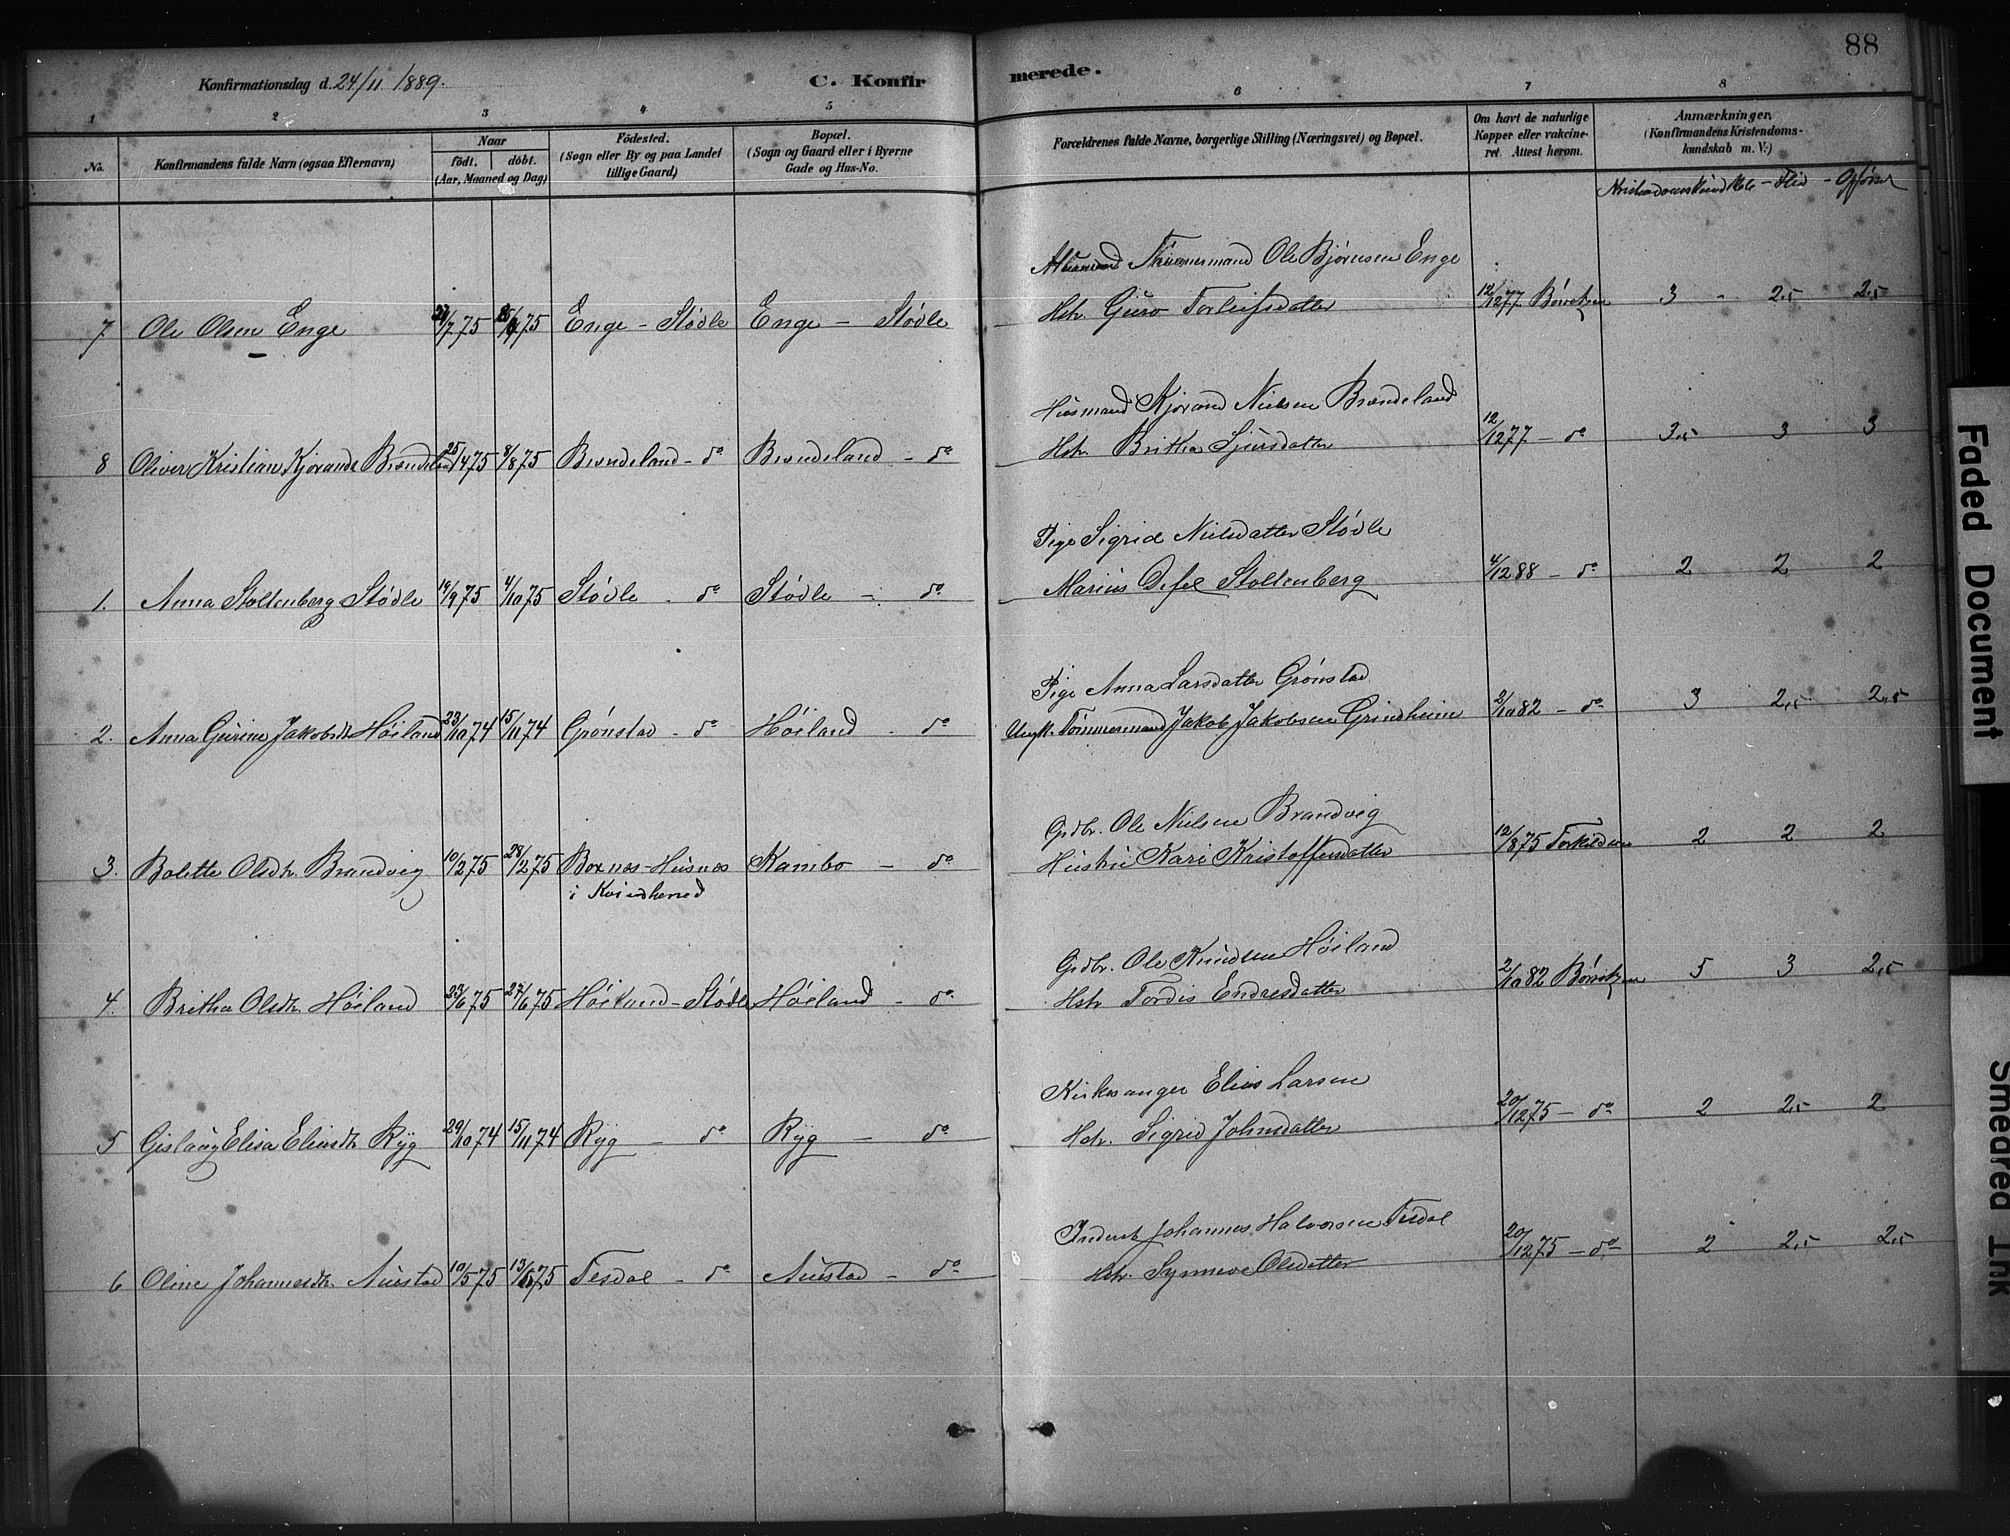 88
Konfirmationsdag d. 24/11 1889.
C. Konfirmerede.
1 2 3 4 5 6 7 8
No.
Konfirmandens fulde Navn (ogsaa Efternavn)
Naar
født. døbt.
(Aar, Maaned og Dag)
Fødested.
(Sogn eller By og paa Landet
tillige Gaard)
Bopæl.
(Sogn og Gaard eller i Byerne
Gade og Hus-No.
Forældrenes fulde Navne, borgerlige Stilling (Næringsvei) og Bopæl.
Om havt de naturlige
Kopper eller vakcine-
ret. Attest herom.
Anmærkninger.
(Konfirmandens Kristendoms-
kundskab m. V.)
Flid - Opførsel
Tømmermand Ole Bjørnsen Enge
7 Ole Olsen Enge /7 75 75 Enge - Stødle Enge - Stødle Hstr. Guro Torleifsdatter 12/12 77 3 - 2,5 2,5
Husmand Kjørand Nielsen Brændeland
8 Oliver Kristian Kjørands Brændeland 25/4 75 8/8 75 Brændeland - do Brændeland - do Hstr. Britha Sjursdatter 12/12 77 - do 3,5 3 3
Pige Sigrid Nielsdatter Stødle
1. Anna Stoltenberg Stødle 19/9 75 4/10 75 Stødle - do Stødle - do Marius Stoltenberg 4/12 88 - do 2 2 2
Pige Anna Larsdatter Grønstad
2. Anna Gurine Jakobsdtr Høiland 23/10 74 15/11 74 Grønstad - do Høiland - do Ungk. Tømmermand Jakob Jakobsen Grindheim 2/10 82 - do 3 2,5 2,5
Grdbr. Ole Nielsen Brandvig
3. Bolette Olsdtr. Brandvig 10/2 75 28/2 75 Boxnes - Husnes Kambo - do Hustru Kari Kristoffersdatter 12/8 75 Torkildsen 2 2 2
i Kvindherred
Grdbr. Ole Knudsen Høiland
4. Britha Olsdtr. Høiland 23/6 75 27/6 75 Høiland - Stødle Høiland - do Hstr. Tordis Endresdatter 2/10 82 5 3 2,5
Kirkesanger Elias Larsen
5 Gislaug Elisa Eliasdtr Ryg 29/10 74 15/11 74 Ryg - do Ryg - do Hstr. Sigrid Johnsdatter 20/12 75 - do 2 2,5 2
Inderst Johannes Halvorsen Tesdal
6 Oline Johannesdtr. Austad 10/5 75 13/6 75 Tesdal - do Austad - do Hstr. Synneve Olsdatter 20/12 75 - do 2 2,5 2,5
Faded Document
Smeared Ink